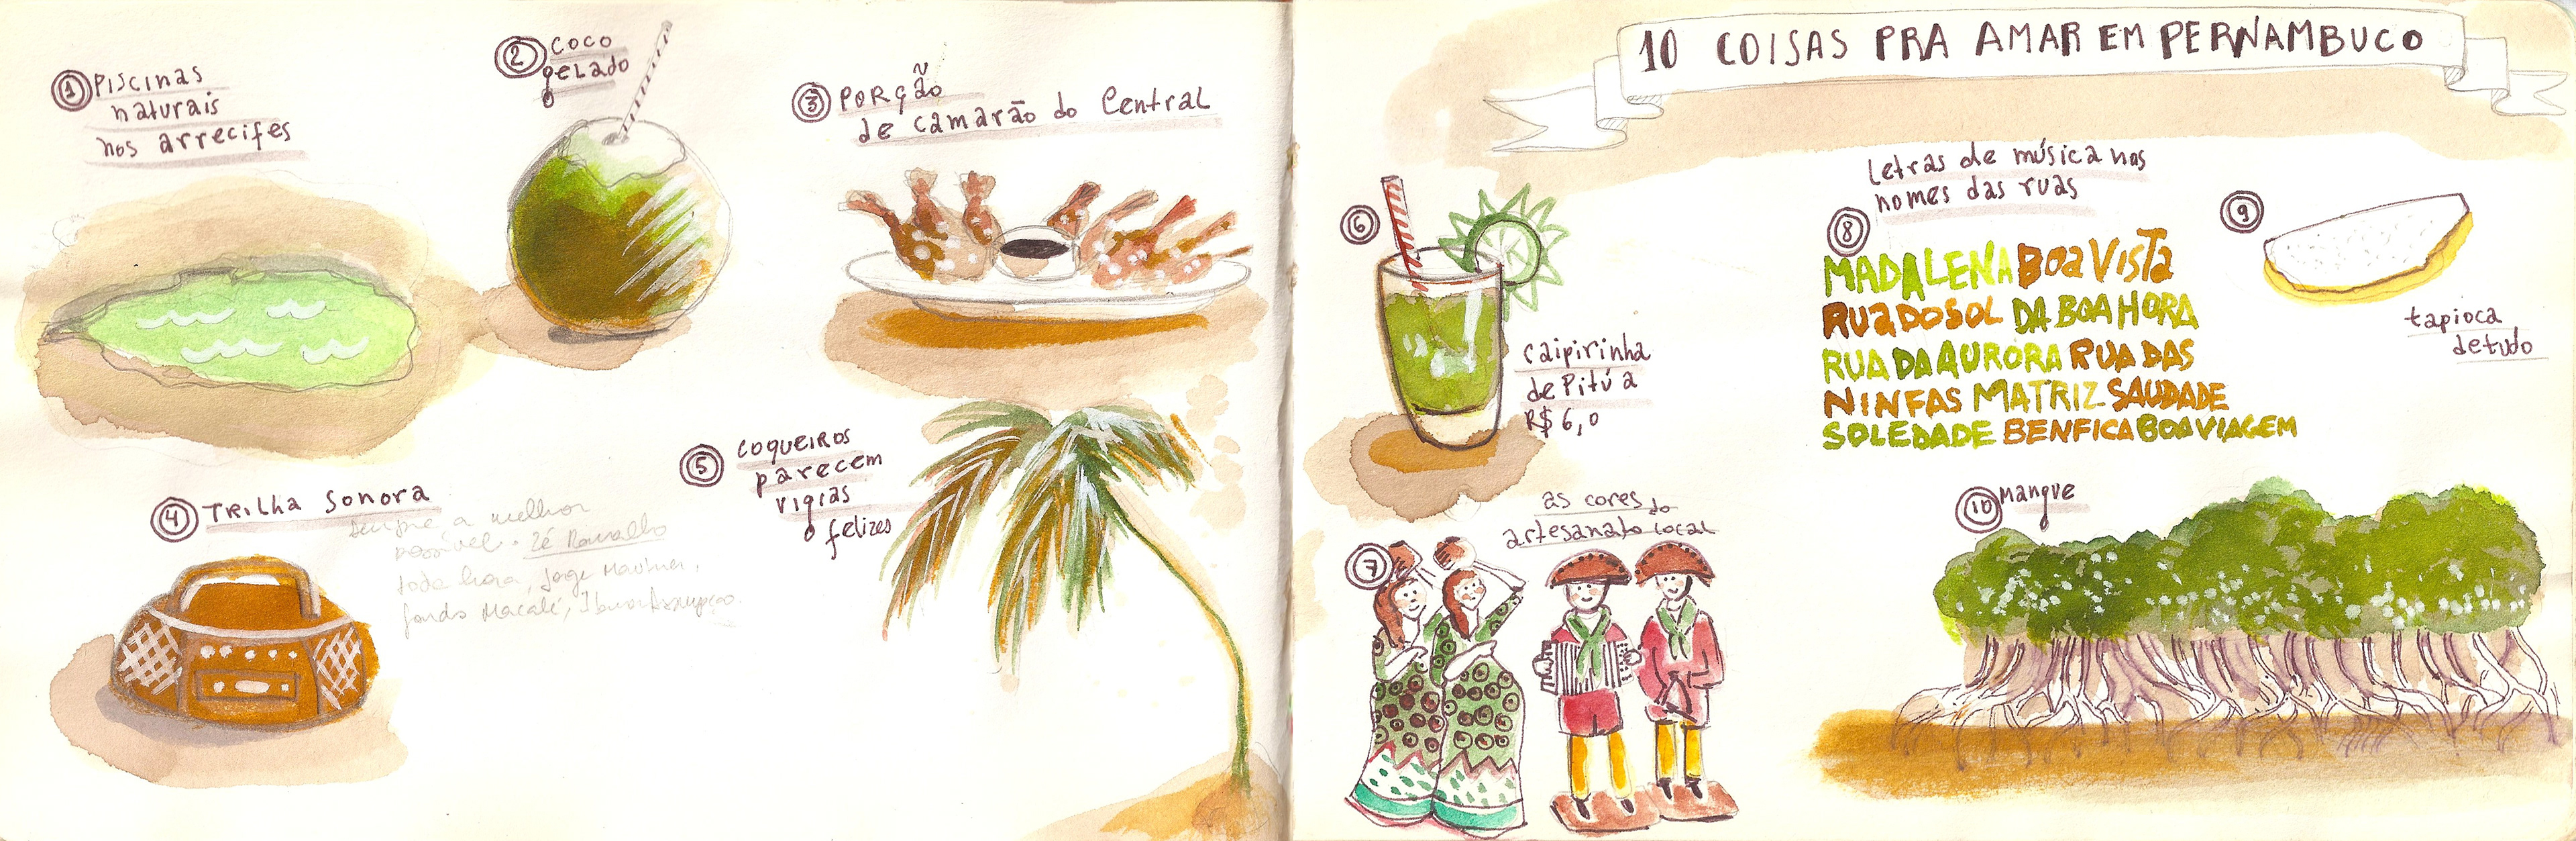 10 COISAS PRA AMAR EM PERNAMBUCO
1 Piscinas
naturais
nos arrecifes
2 coco
gelado
3 Porção
de camarão do Central
4 Trilha sonora
sempre a melhor
possível. Zé Ramalho
toda hora, Jorge Mautner,
Macalé,
5 coqueiros
parecem
vigias
felizes
6
caipirinha
de Pitú a
R$ 6,0
7
as cores do
artesanato local
8
Letras de música nos
nomes das ruas
MADALENA BOA VISTA
RUA DO SOL DA BOA HORA
RUA DA AURORA RUA DAS
NINFAS MATRIZ SAUDADE
SOLEDADE BENFICA BOA VIAGEM
9
tapioca
de tudo
10 mangue